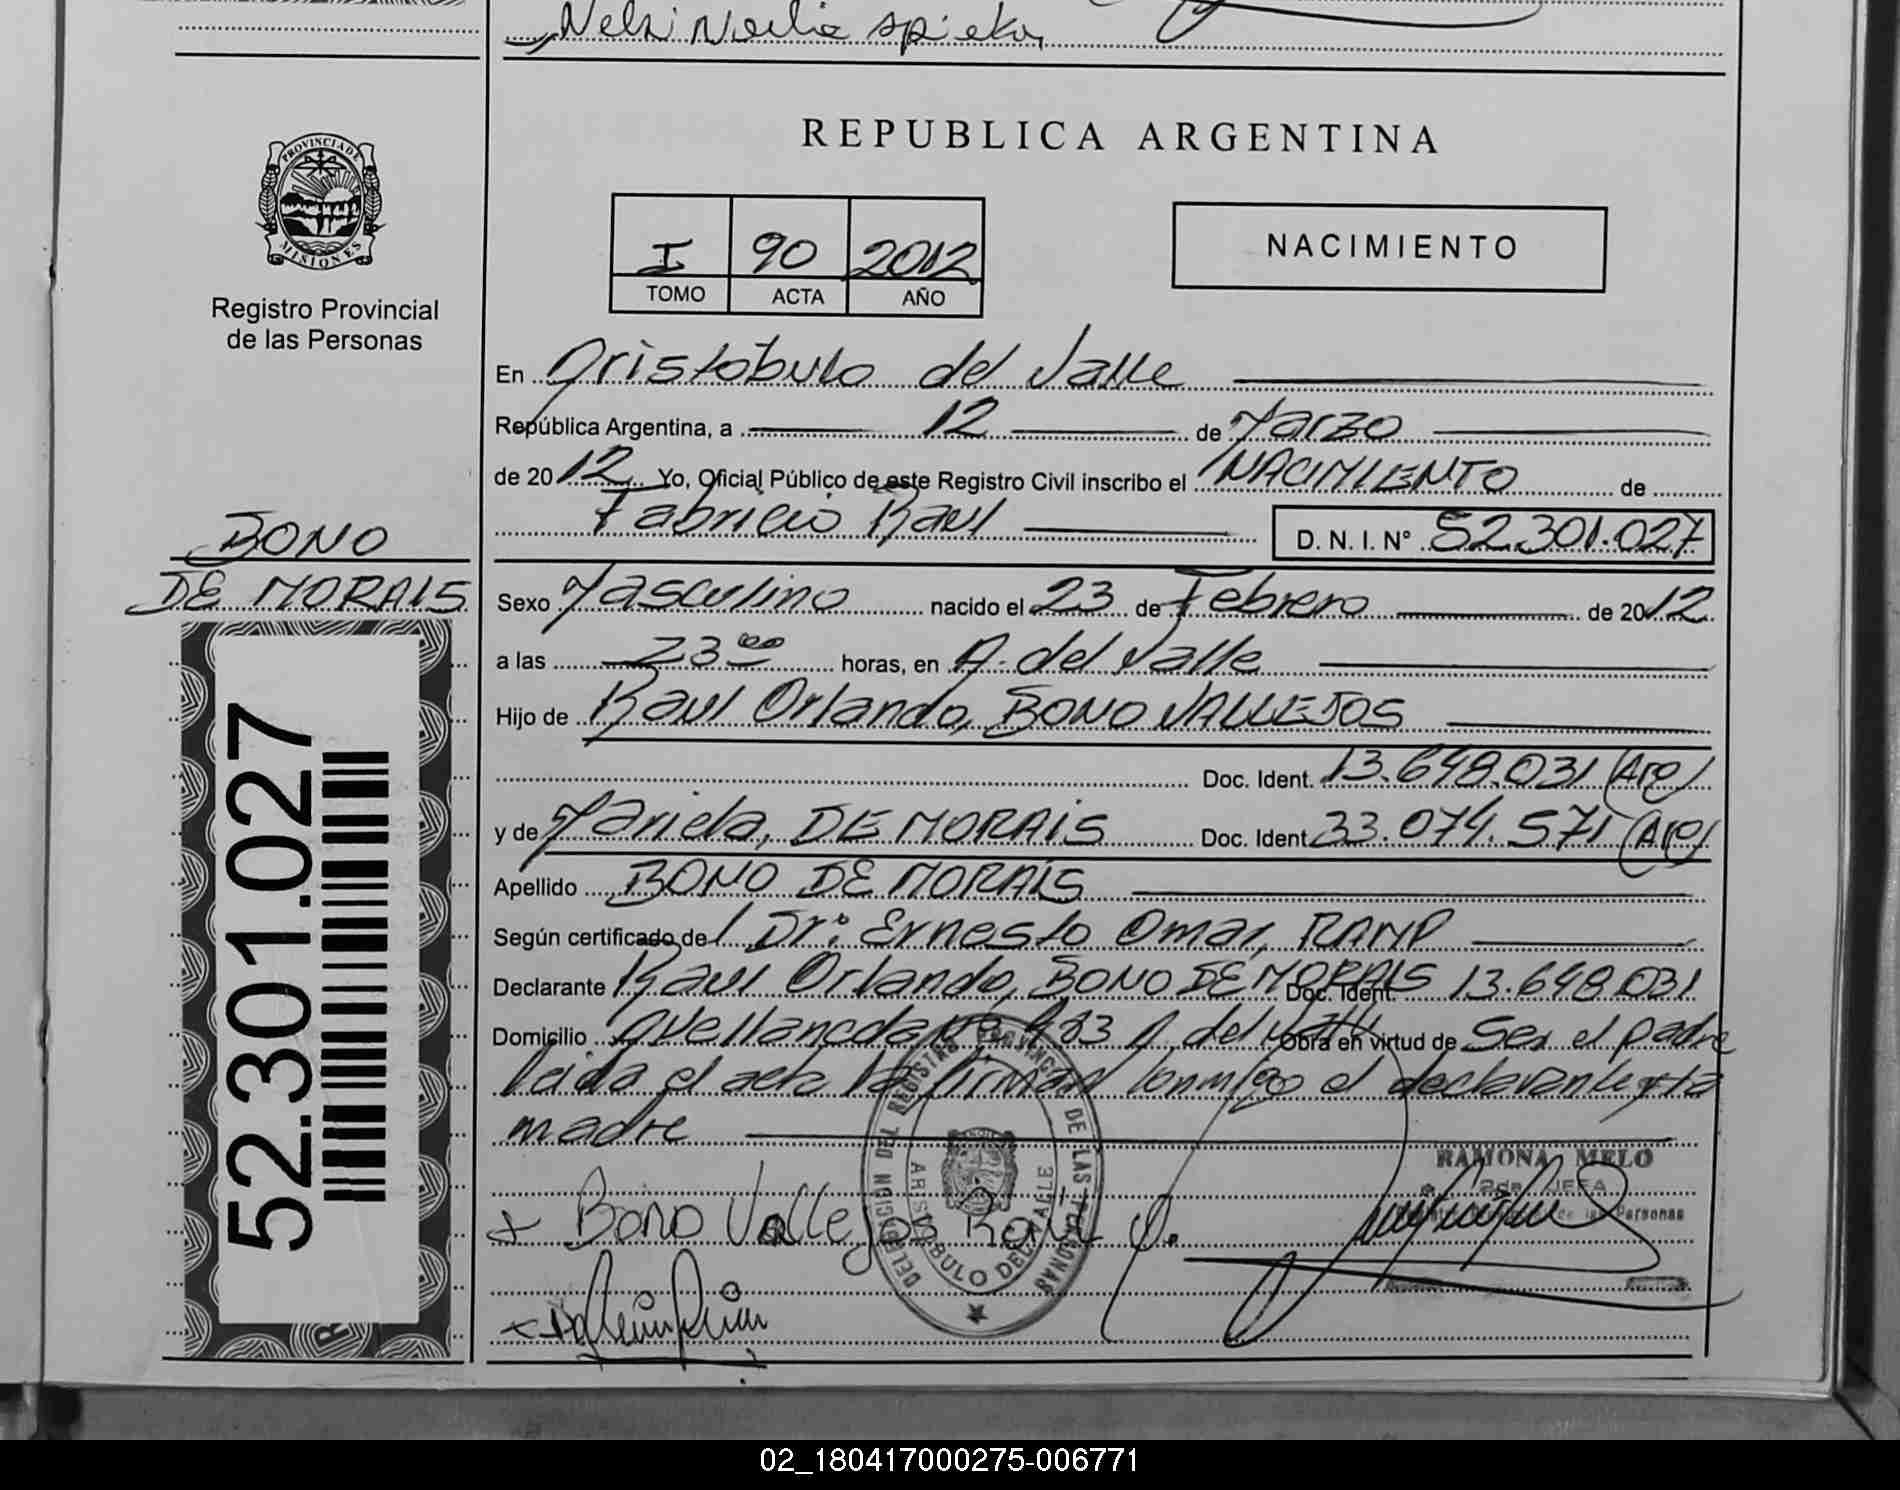 Neli Noelia Spieker
PROVINCIA DE
MISIONES
Registro Provincial
de las Personas
REPUBLICA ARGENTINA
I 90 2012
TOMO ACTA AÑO
NACIMIENTO
En Aristóbulo del Valle
República Argentina, a 12 de Marzo
de 2012 Yo, Oficial Público de este Registro Civil inscribo el NACIMIENTO de
Fabricio Raul D. N. I. N° 52.301.027
BONO
DE MORAIS
52.301.027
Sexo Masculino nacido el 23 de Febrero de 2012
a las 23 00 horas, en A. del Valle
Hijo de Raul Orlando, BONO VALLEJOS
Doc. Ident. 13.648.031 (Arg)
y de Mariela, DE MORAIS Doc. Ident 33.074.571 (Arg)
Apellido BONO DE MORAIS
Según certificado de Dr: Ernesto Omar, RAND
Declarante Raul Orlando, BONO DE MORAIS Doc. Ident. 13.648.031
Domicilio Avellaneda 983 A. del Valle Obra en virtud de Ser el padre
leida el acta la firman conmigo el declarante y la
madre
DELEGACIÓN DEL REGISTRO PROVINCIAL DE LAS PERSONAS
ARISTOBULO DEL VALLE
RAMONA MELO
2da JEFA
de las Personas
+ Bono Vallejos Raúl O.
02_180417000275-006771